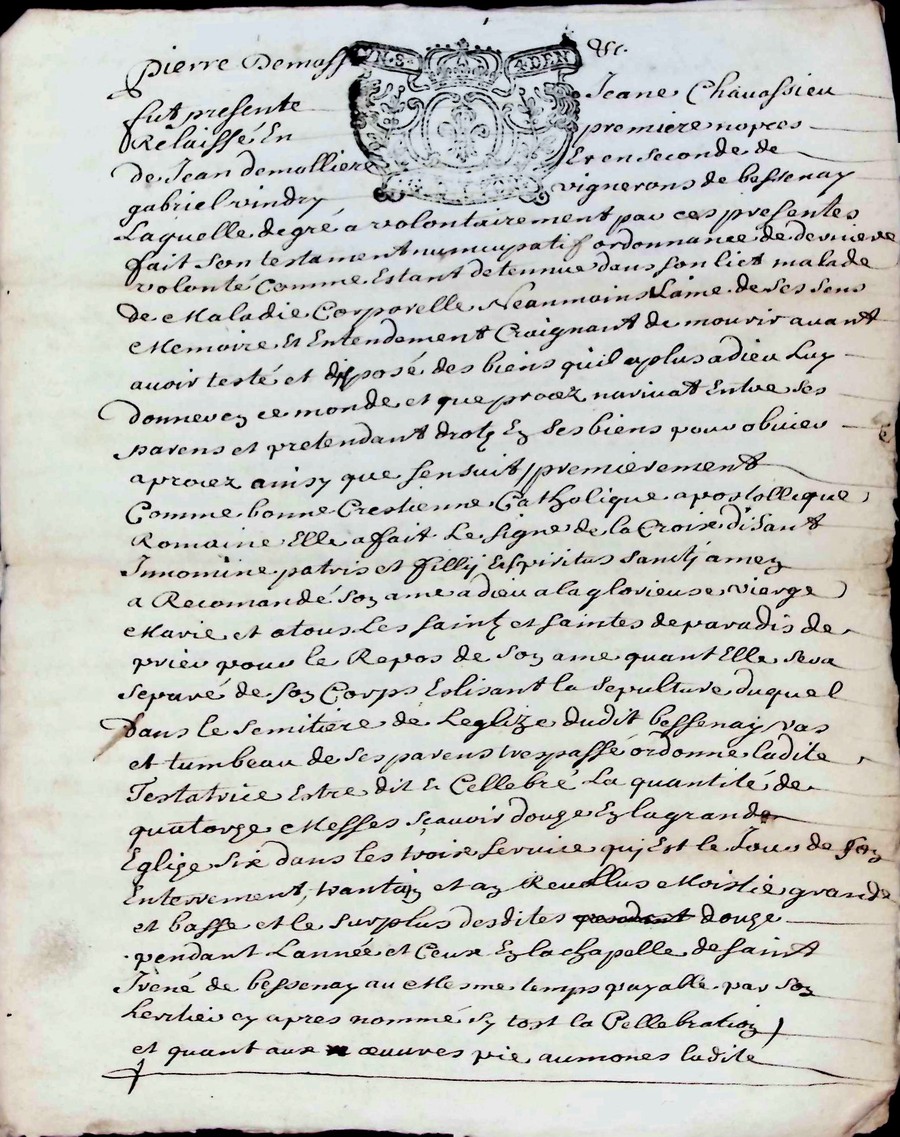 pierre Demass VN.S 4 DEN &c.
fut presente Jeane Chauassieu
Relaissé En premiere nopces
de Jean demolliere Et en seconde de
gabriel vindry vignerons de bessenay
Laquelle de gré a volontairement par ces presentes
fait son testament nuncupatif ordonnance de derniere
volonté Comme Estant detenue dans son lict malade
de Maladie Corporelle Neanmoins saine de ses sens
Memoire Et Entendement Craignant de mourir auant
auoir testé et disposé des biens quil a plus a dieu Luy
donner en ce monde et que procez narivat Entre ses
parens et pretendant droitz En ses biens pour obuier
a procez ainsy que sensuit premierement
Comme bonne Crestienne Catholique apostollique
Romaine Elle a fait Le signe de la Croix disant
Innomine patris et fillij Et spiritus sanctj amen
a Recomandé son ame a dieu a la glorieuse vierge
Marie et a tous Les saintz et saintes de paradis de
prier pour le Repos de son ame quant Elle sera
separé de son Corps Eslisant la sepulture duquel
dans le semitiere de Leglize dudit bessenay vas
et tumbeau de ses parens trepassé ordonne ladite
Testatrice Estre dit & Cellebré La quantité de
quatorze Messes sçauoir douze En la grande
Eglize six dans les trois service quj Est le Jour de son
Enterrement, trantin et an Reuollus Moistie grande
et basse et le surplus desdites pendant douze
pendant Lannée et Ceux En la chapelle de saint
Irené de bessenay au Mesme temps payable par son
hertier cy apres nommé sy tost la Cellebration
et quant aux œuvres pie aumones ladite